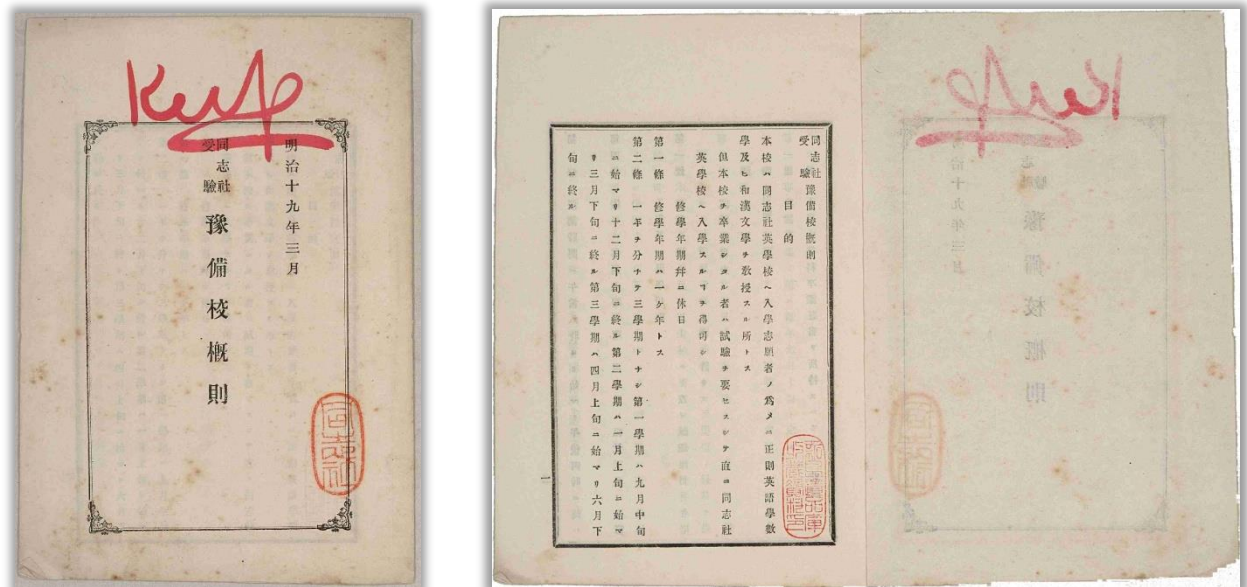 Keep
明治十九年三月
同志社
受驗
豫備校概則
同志社
同志社
受驗
豫備校概則
目的
本校ハ同志社英學校ヘ入學志願者ノ爲メニ正則英語學數
學及ヒ和漢文學ヲ教授スル所トス
但本校ヲ卒業シタル者ハ試驗ヲ要セスシテ直ニ同志社
英學校ヘ入學スルヿヲ得可シ
修學年期并ニ休日
第一條 修學年期ハ一ケ年トス
第二條 一年ヲ分チテ三學期トナシ第一學期ハ九月中旬
ニ始マリ十二月下旬ニ終ル第二學期ハ一月上旬ニ始マ
リ三月下旬ニ終ル第三學期ハ四月上旬ニ始マリ六月下
旬ニ終ル
一